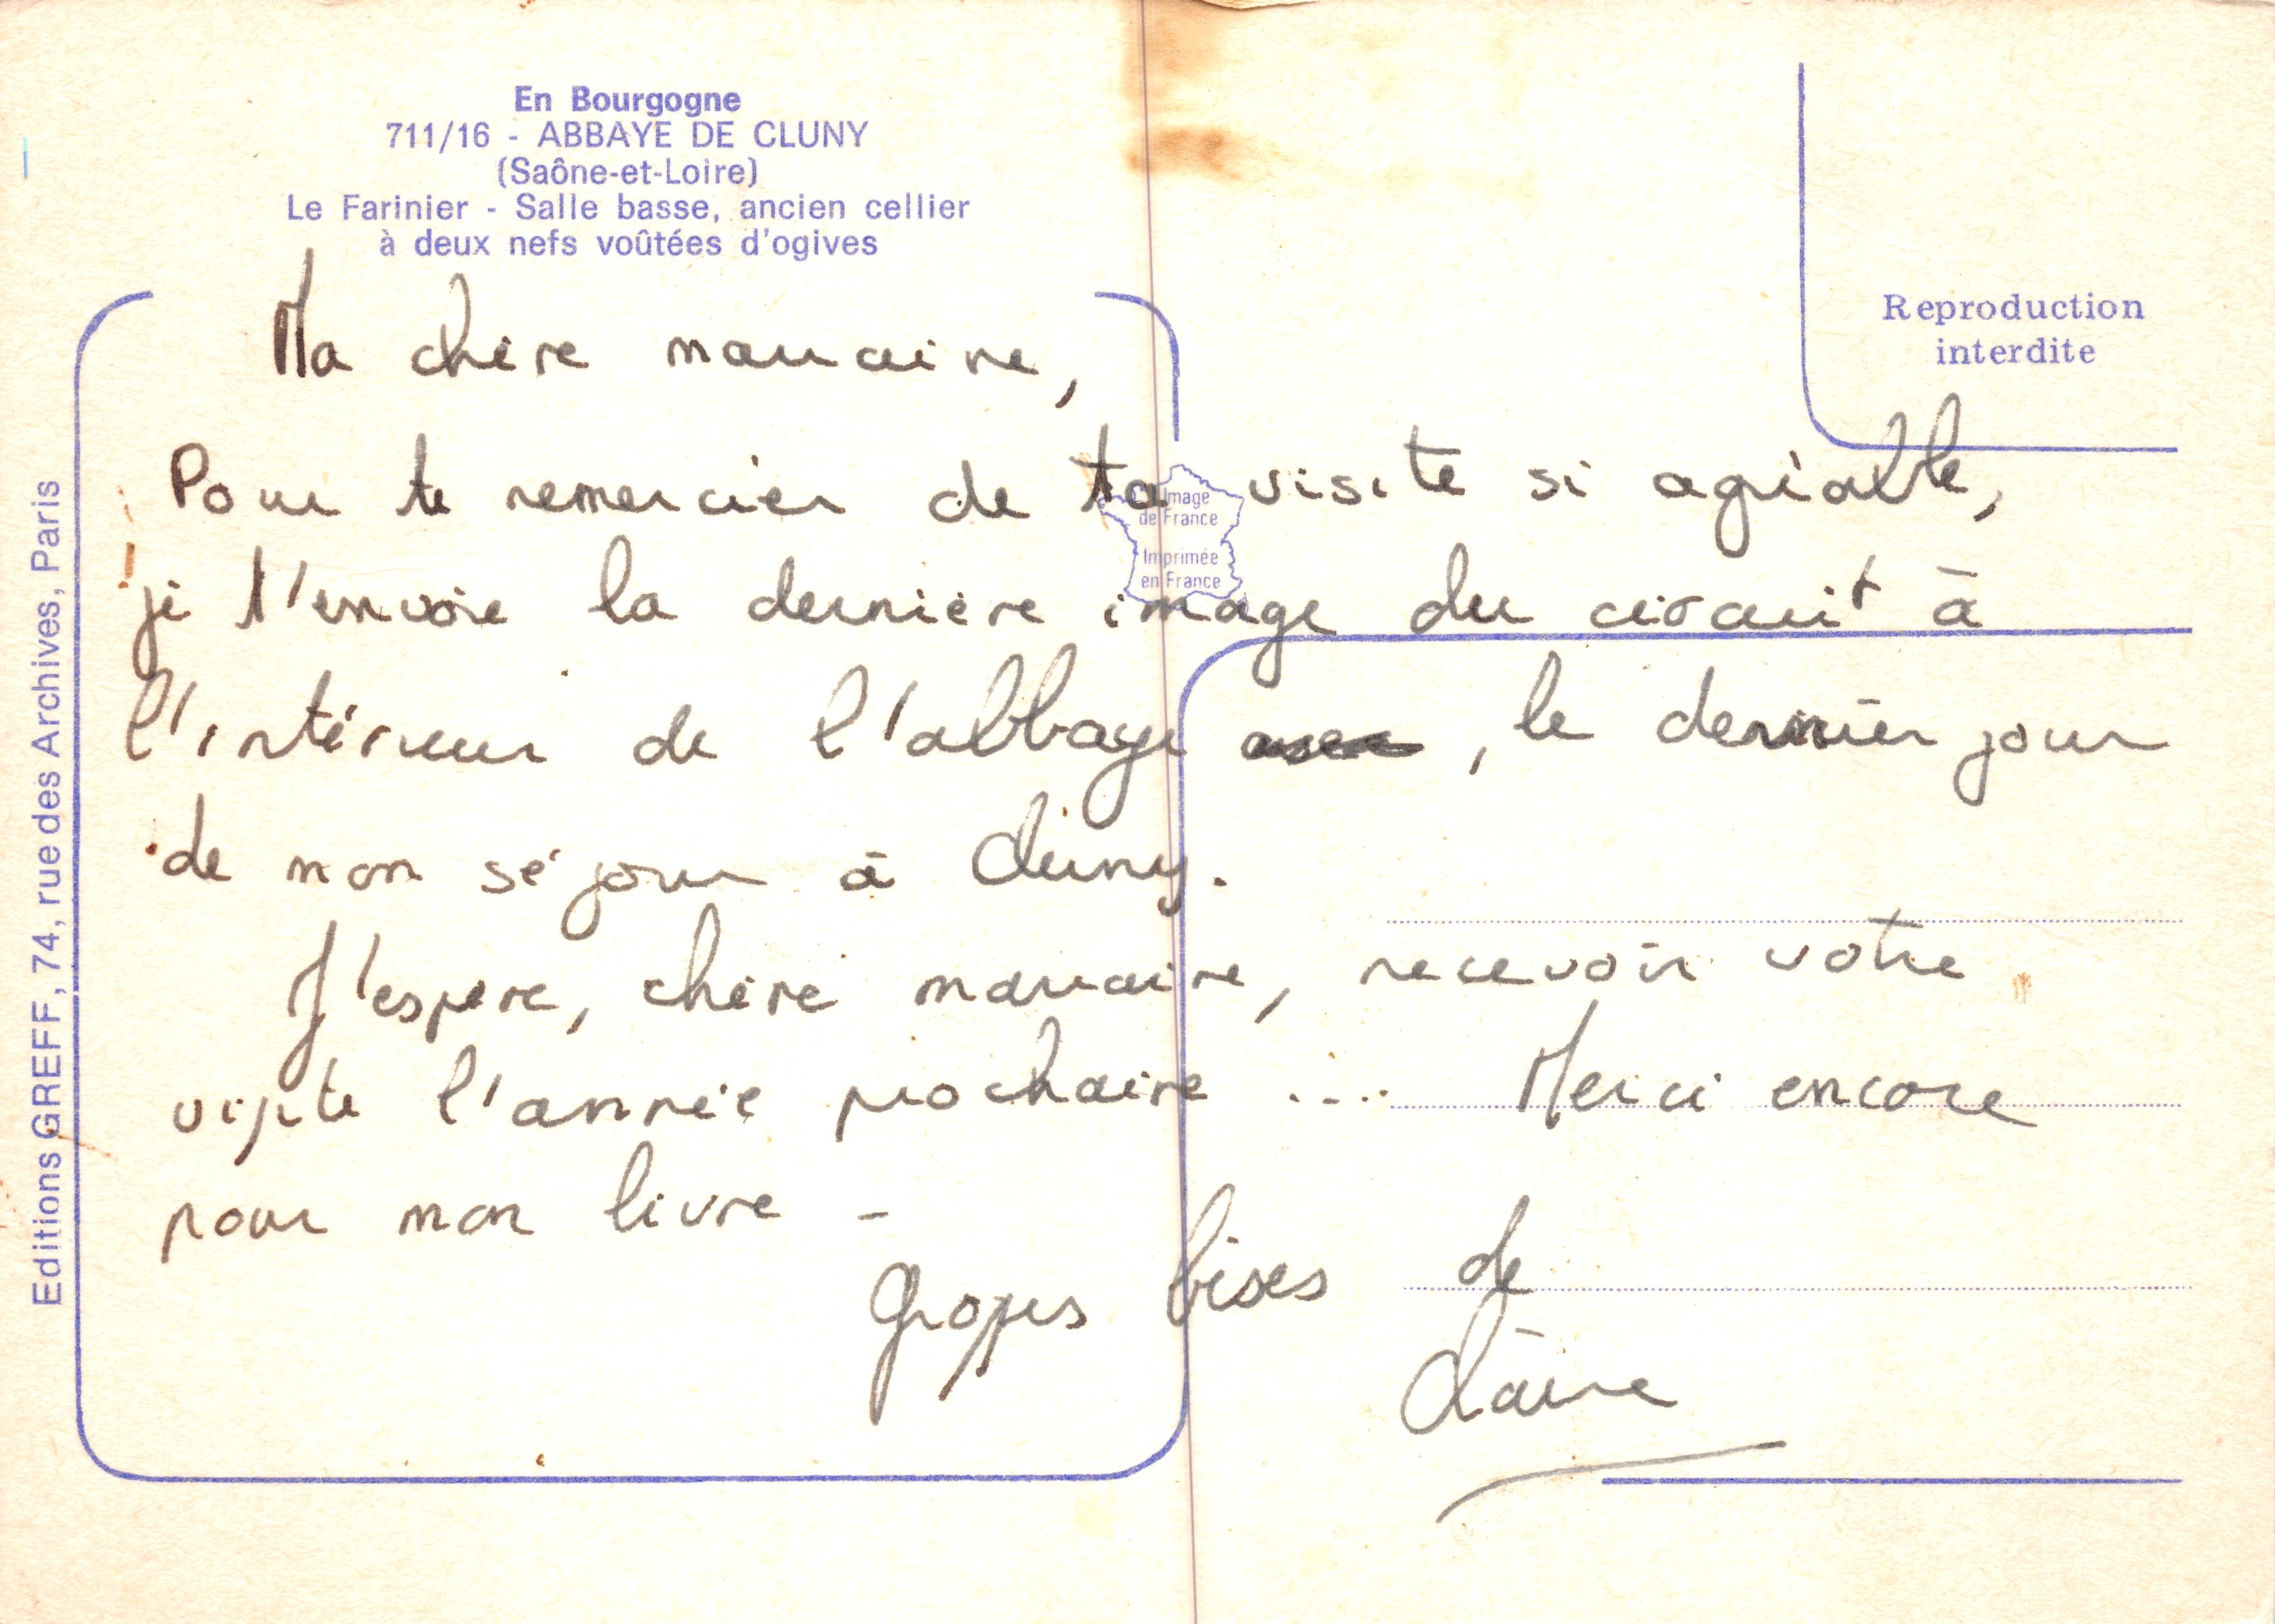 En Bourgogne
711/16 - ABBAYE DE CLUNY
(Saône-et-Loire)
Le Farinier - Salle basse, ancien cellier
à deux nefs voûtées d'ogives
Editions GREFF, 74, rue des Archives, Paris
Reproduction
interdite
Image
de France
Imprimée
en France
Ma chère marraine,
Pour te remercier de ta visite si agréable,
je t'envoie la dernière image du circuit à
l'intérieur de l'abbaye , le dernier jour
de mon séjour à Cluny.
J'espère, chère marraine, recevoir votre
visite l'année prochaine .... Merci encore
pour mon livre -
Grosses bises de
Claire